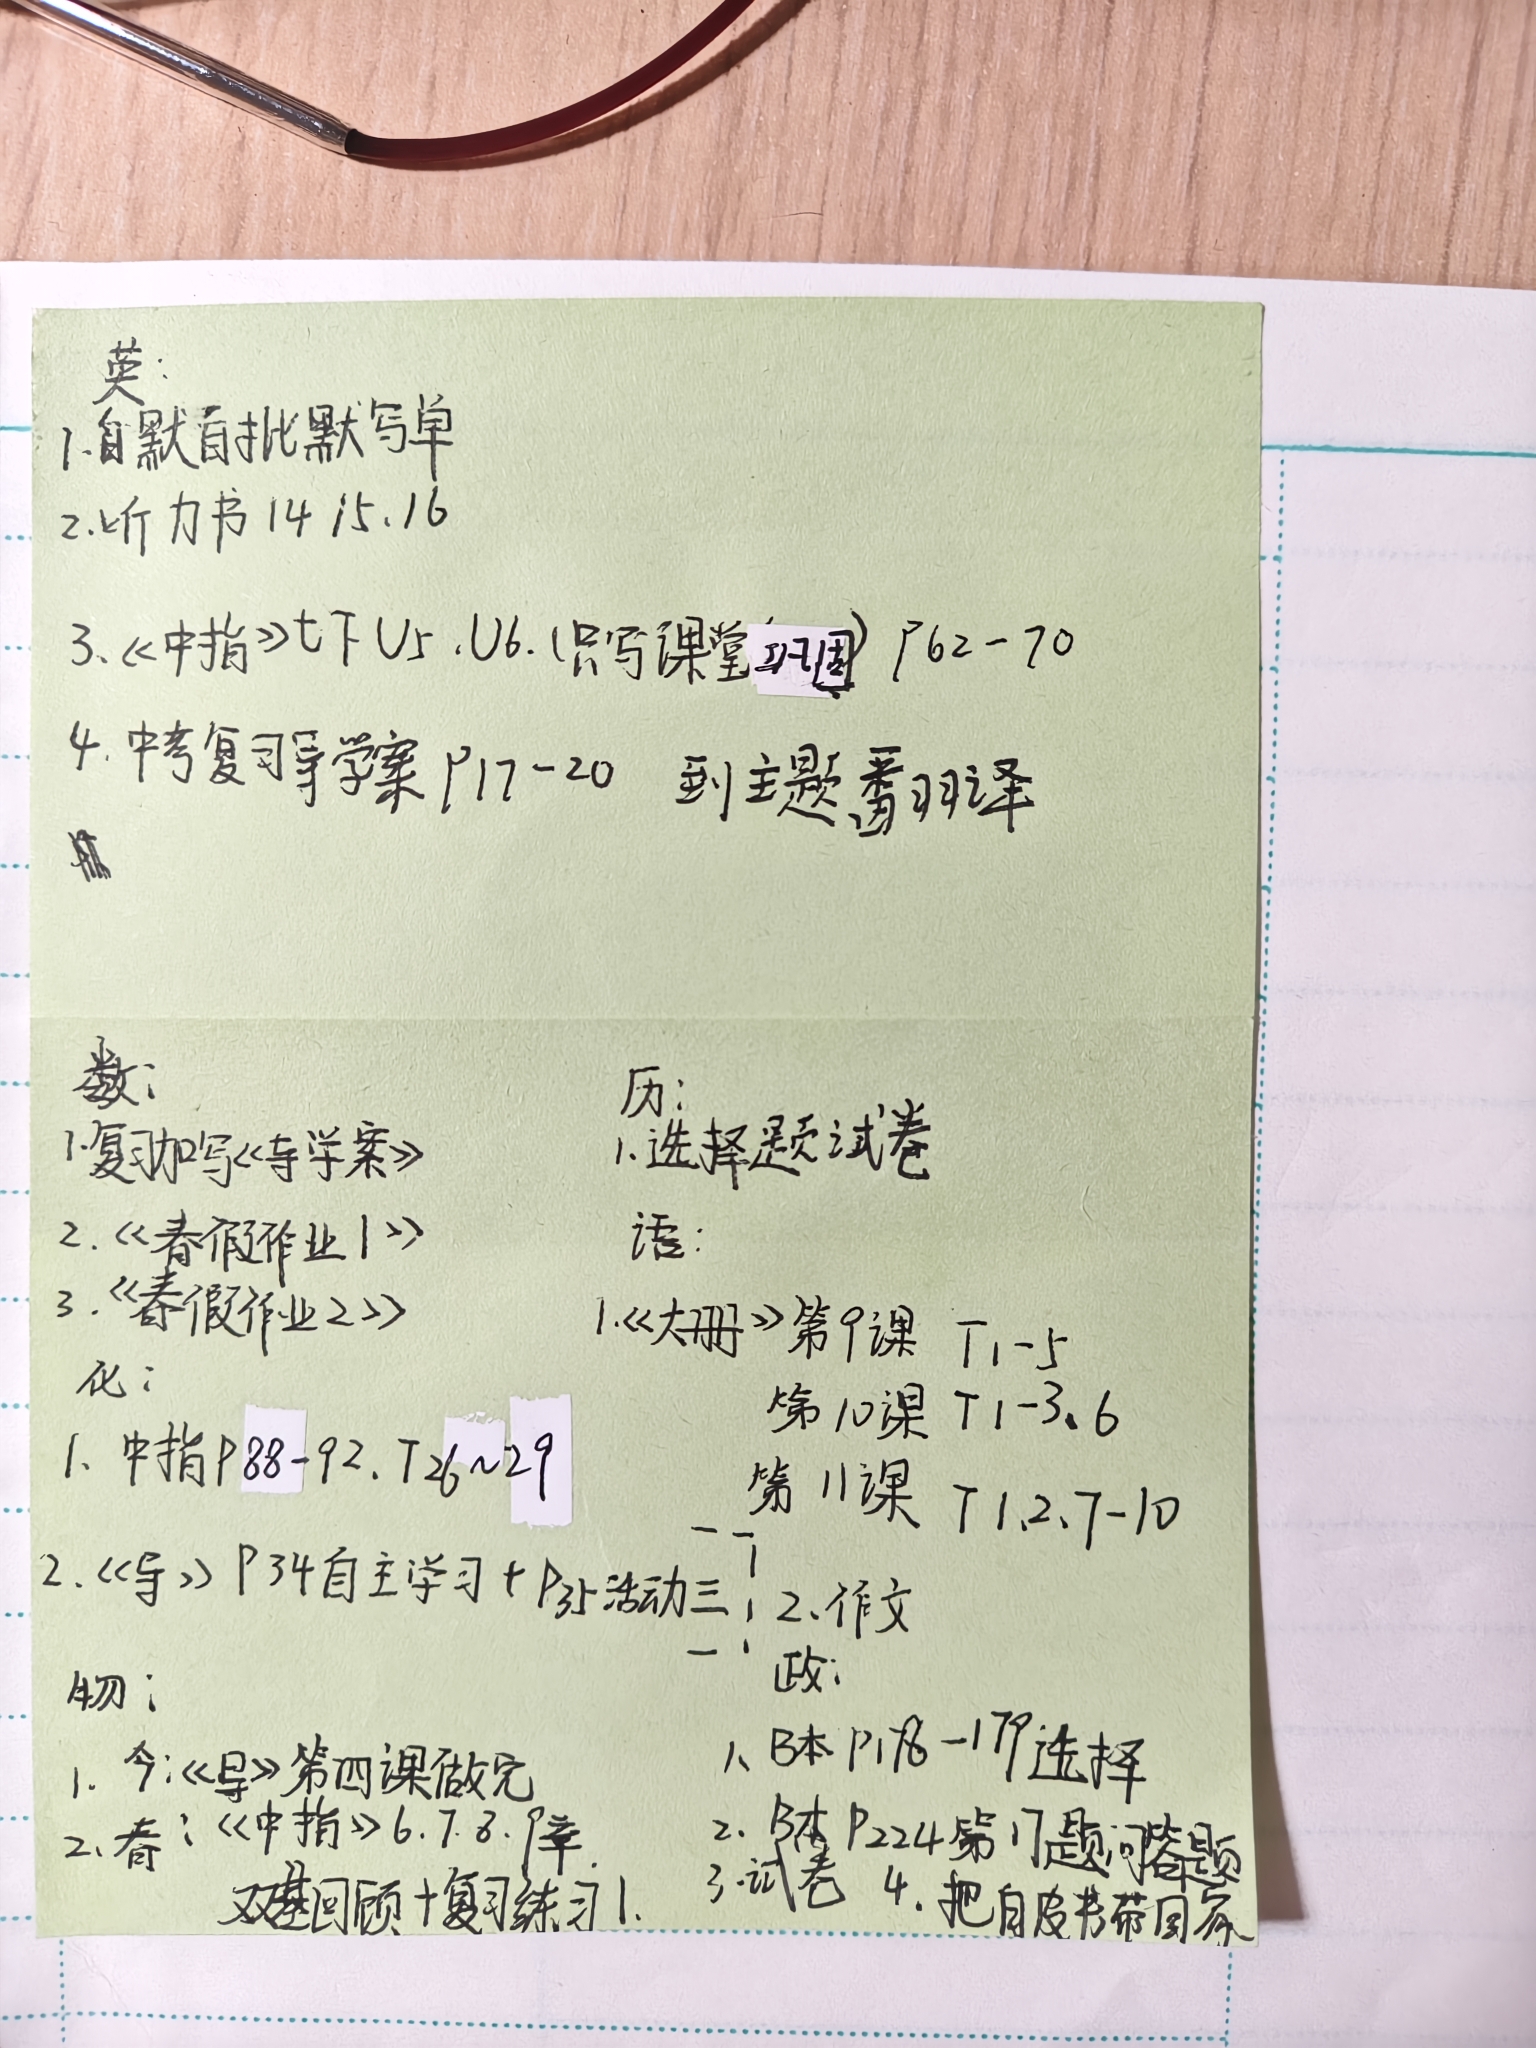 英:
1.自默自批默写单
2.听力书14 15.16
3.《中指》七下U5.U6.(只写课堂巩固) P62-70
4.中考复习导学案P17-20 到主题翻译
数:
1.复习加写《导学案》
2.《春假作业1》
3.《春假作业2》
化:
1、中指P88-92、T26~29
2.《导》P34自主学习+P35活动三
物:
1.今:《导》第四课做完
2.春:《中指》6.7.8.9章
双基回顾+复习练习1.
历:
1.选择题试卷
语:
1.《大册》第9课 T1-5
第10课 T1-3、6
第11课 T1、2、7-10
2、作文
政:
1、B本P178-179选择
2.B本P224第17题问答题
3.试卷 4.把自皮书带回家